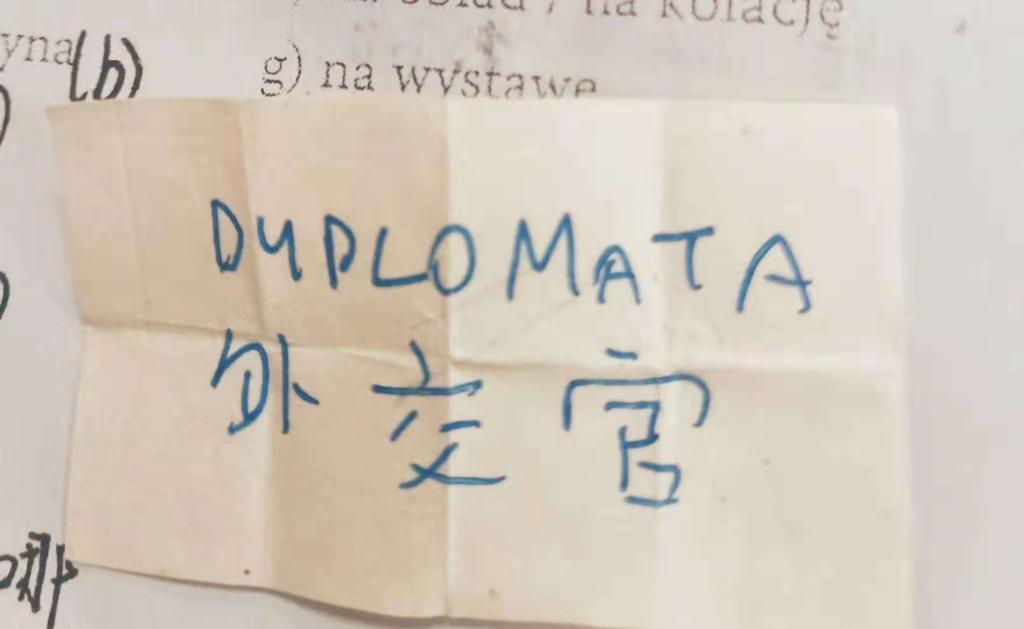 na kolację
(b)
g) na wystawę
DYPLOMATA
外交官